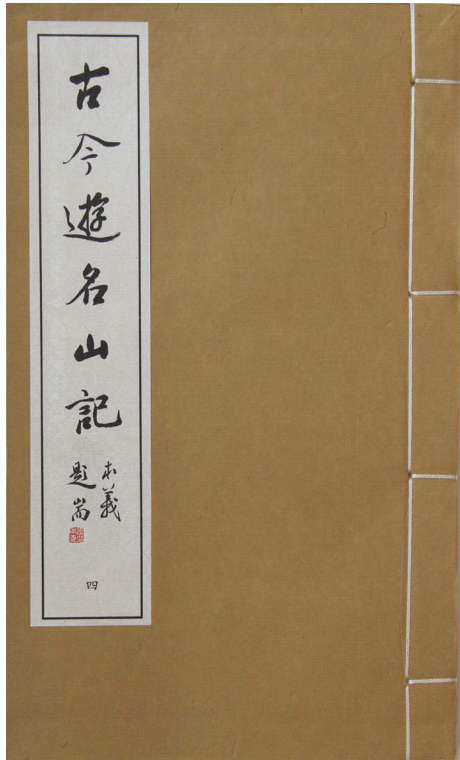 古今遊名山記
本義
題耑
四